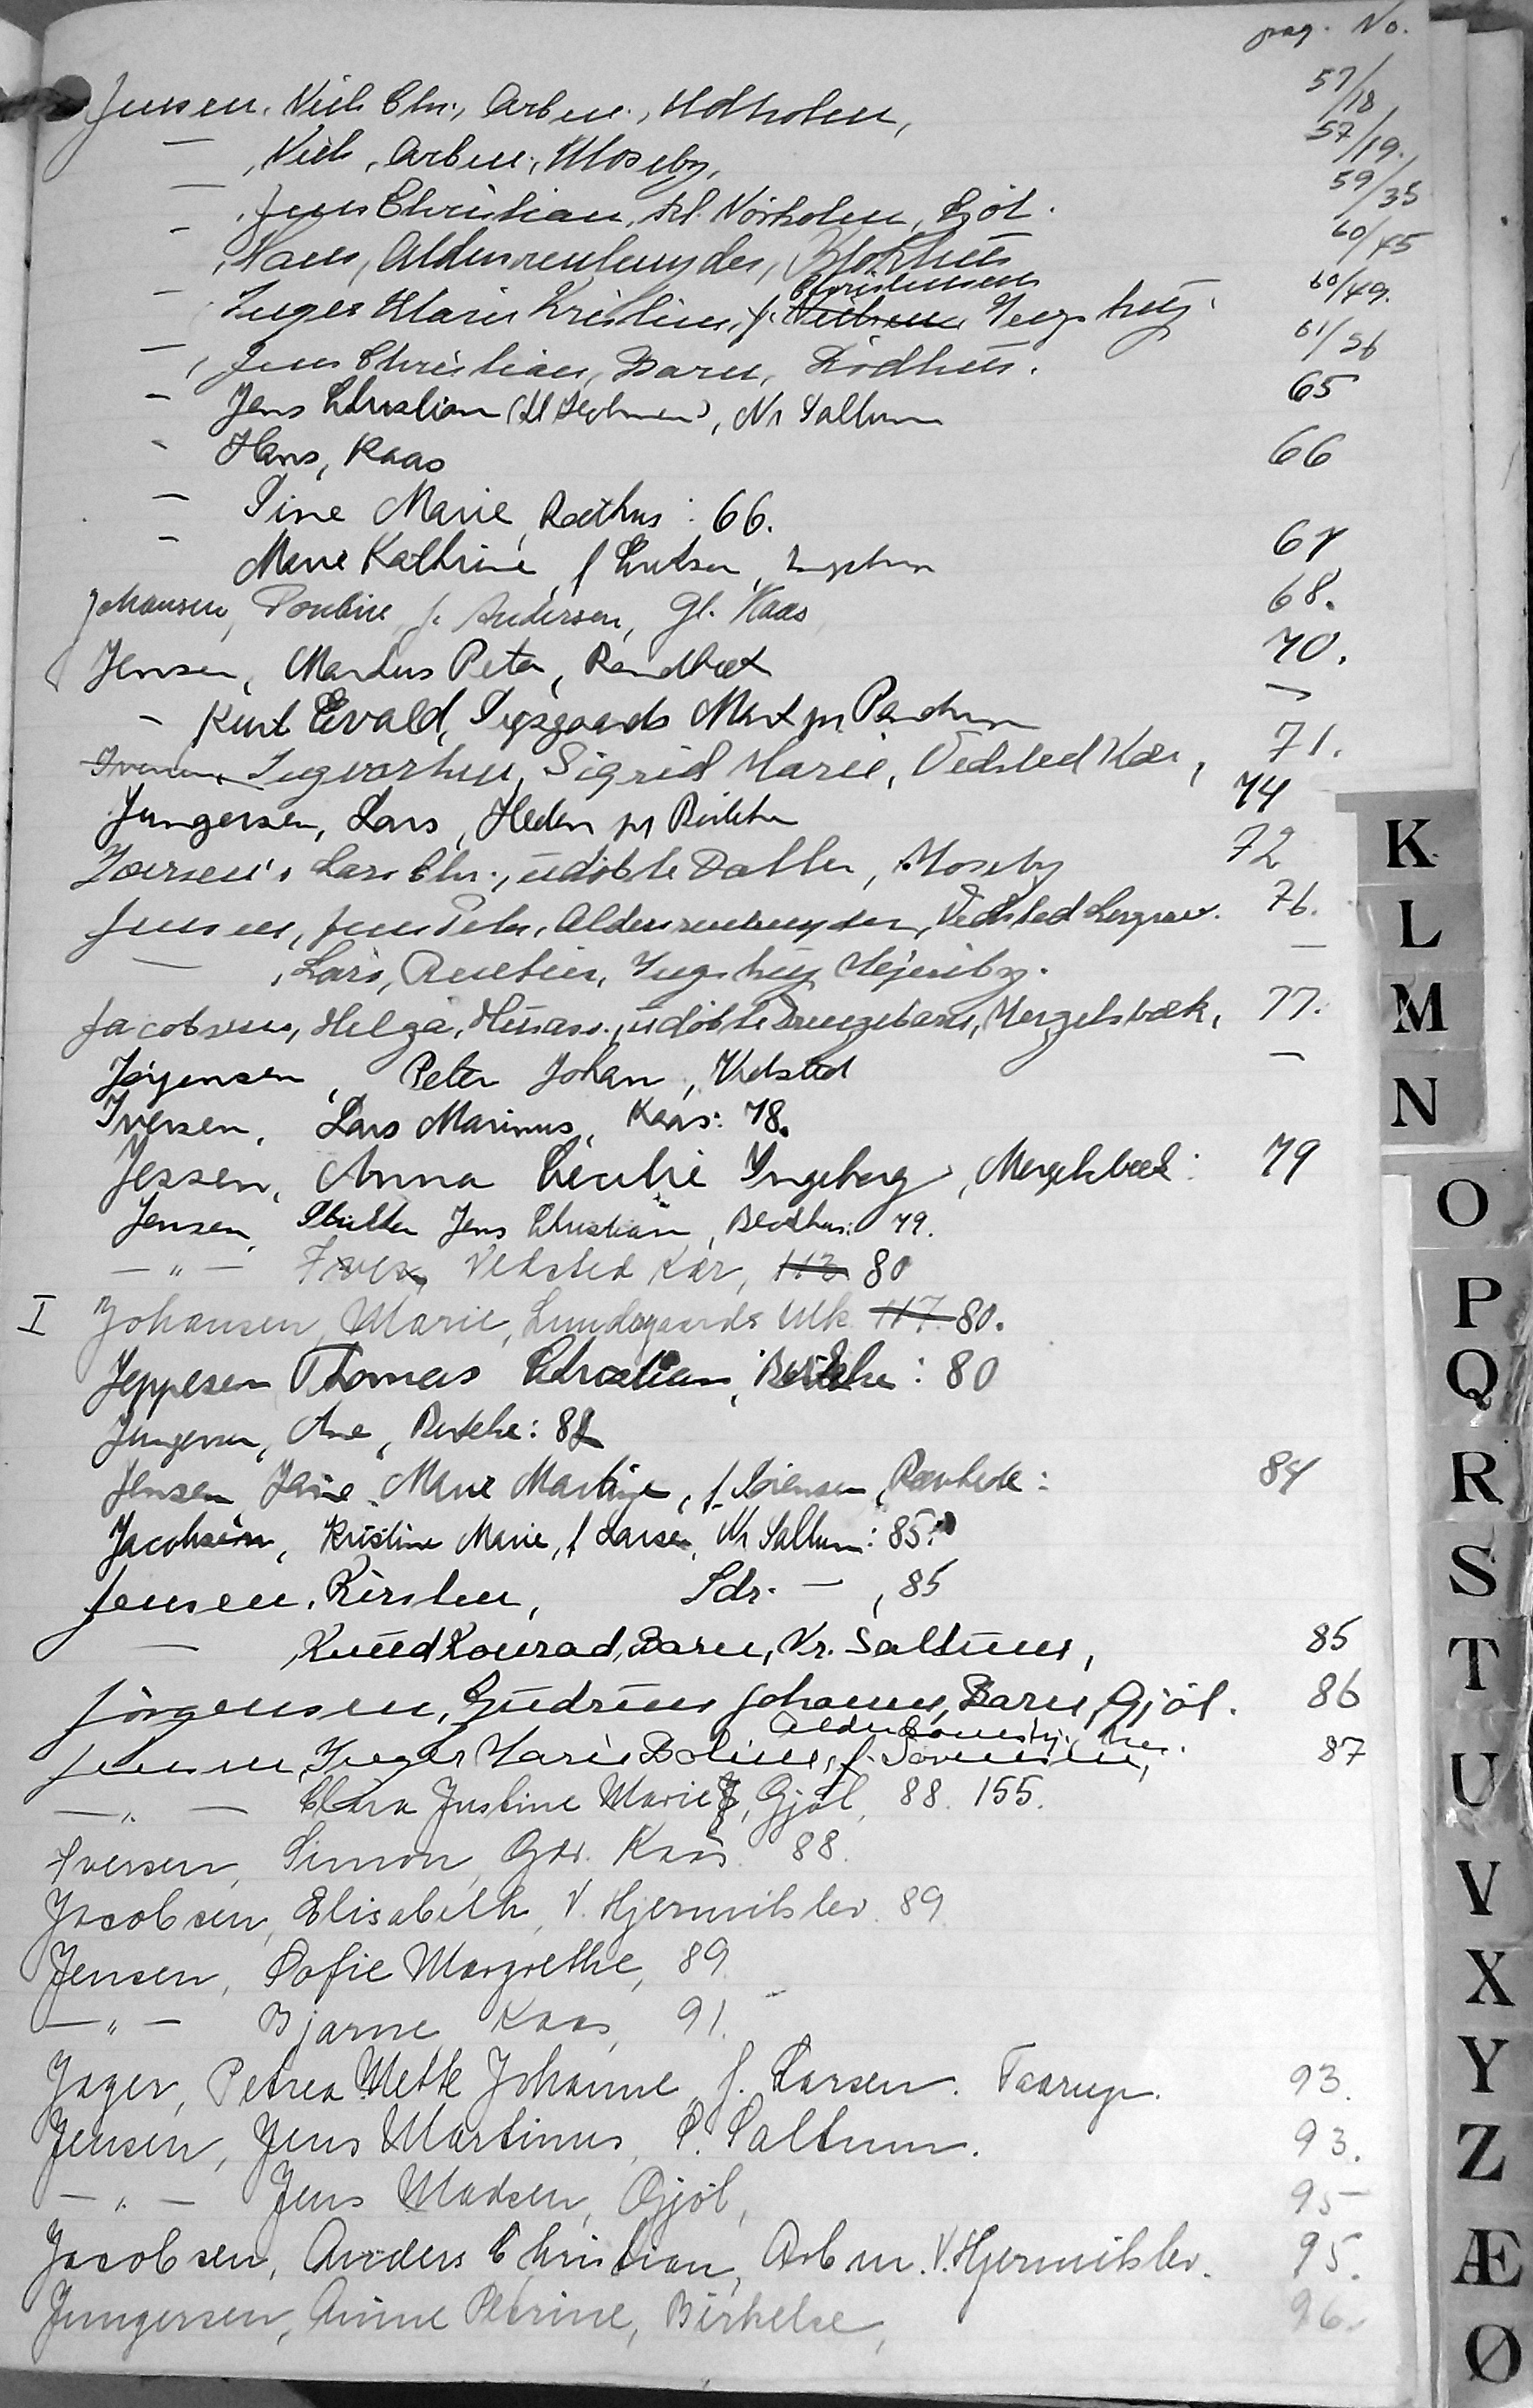 pag. No.
Jensen, Niels Chr., Arbm., Moseby, 57/18
— , Niels, Arbm., Moseby, 57/19.
— , Jens Christian, Nørholm, Gjöl. 59/35
— , Hans, Aldersrentenyder, Blokhus 60/45
— Inger Marie Kristine, f. Christensen Ingstrup. 60/49.
— , Jens Christian, Barn, Rödhus. 61/56
— Jens Christian, Nr Saltum 65
— Hans, Kaas 66
— Sine Marie, Rødhus: 66.
— Marie Kathrine, f Knudsen, Ingstrup 67
Johansen, Pouline f. Andersen, Gl. Kaas 68.
Jensen, Marius Peter, Rendbæk 70.
— Kurt Evald, Sysgaards Mark pr Pandrup —
Ingvorsen, Sigrid Marie, Vedsted Kær, 71.
Jungersen, Lars, Heden pr Birkelse 74
Iversen's Lars Chr., udöbte Datter, Moseby 72
Jensen, Jens Peter, Aldersrentenyder, Vedsted 76.
— , Lars, Rentier, Ingstrup Mejeriby. —
Jacobsen, Helga, Husass., udöbte Drengebarn, Mergelsbæk, 77.
Jörgensen, Peter Johan, Vedsted —
Iversen, Lars Marinus, Kaas: 78.
Jessen, Anna Cecilie Ingeborg, Mergelsbæk: 79
Jensen, Jens Christian, Blokhus: 79.
— " — Vedsted Kær, 112 80
I Johansen, Marie, Lundegaards Mk. 117 80.
Jeppesen Thomas Christian, Birkelse: 80
Jungersen, Ane, Birkelse: 82
Jensen Marie Martine, f. Sörensen, 84
Jacobsen, Kristine Marie, f Larsen, Nr Saltum: 85.
Jensen, Kirsten, Sdr. — , 85
— , Knud Konrad, Barn, Nr. Saltum, 85
Jörgensen, Gudrun Johanne, Barn, Gjöl. 86
Jensen, Inger Marie Boline, f. Sörensen, 87
— " — Clara Justine Marie J, Gjöl, 88. 155.
Iversen, Simon, Gdr. Kaas 88.
Jacobsen, Elisabeth, V. Hjermitslev. 89
Jensen, Sofie Margrethe, 89
— " — Bjarne Kaas, 91.
Jager, Petrea Mette Johanne f. Larsen. Taarup. 93.
Jensen, Jens Martinus, S. Saltum. 93.
— " — Jens Madsen, Gjöl, 95
Jacobsen, Anders Christian, Arbm. V. Hjermitslev. 95.
Jungersen, Anine Petrine, Birkelse, 96.
K
L
M
N
O
P
Q
R
S
T
U
V
X
Y
Z
Æ
Ø